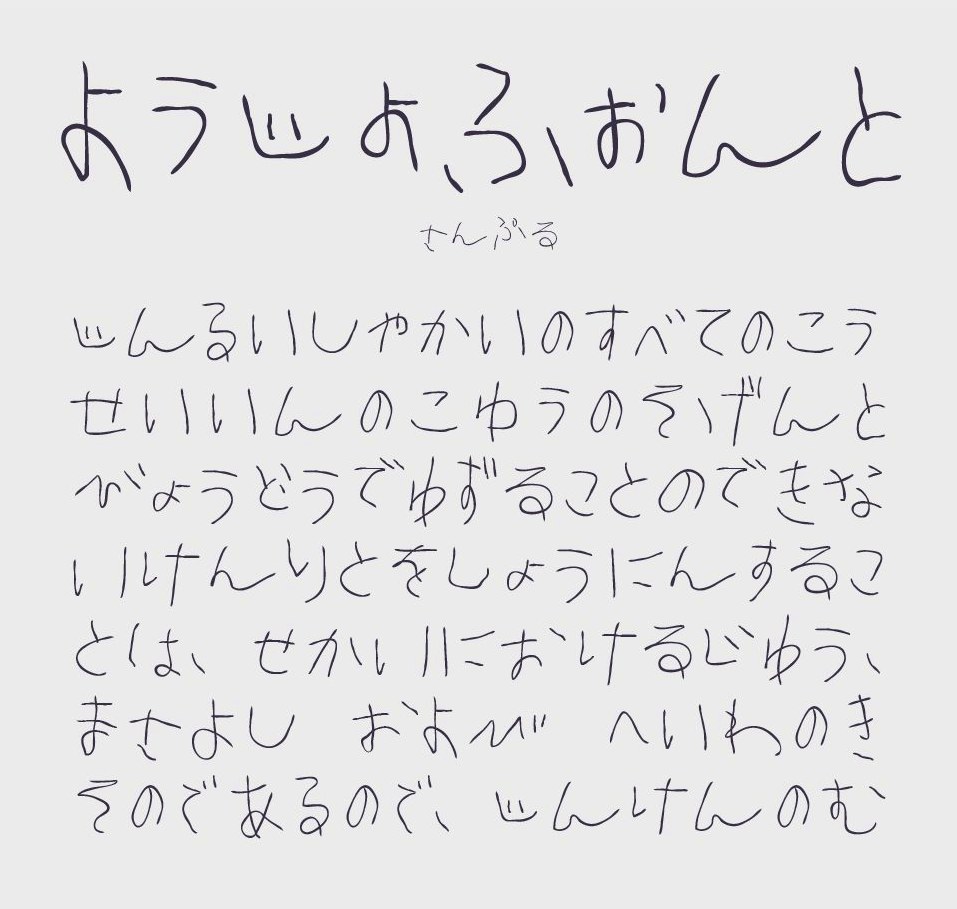 ようじょふぉんと
さんぷる
じんるいしゃかいのすべてのこう
せいいんのこゆうのそ、げんと
びょうどうでゆずることのできな
いけんりとをしょうにんするこ
とは、せかいにおけるじゆう、
まさよし　および　へいわのき
そのであるので、じんけんのむ